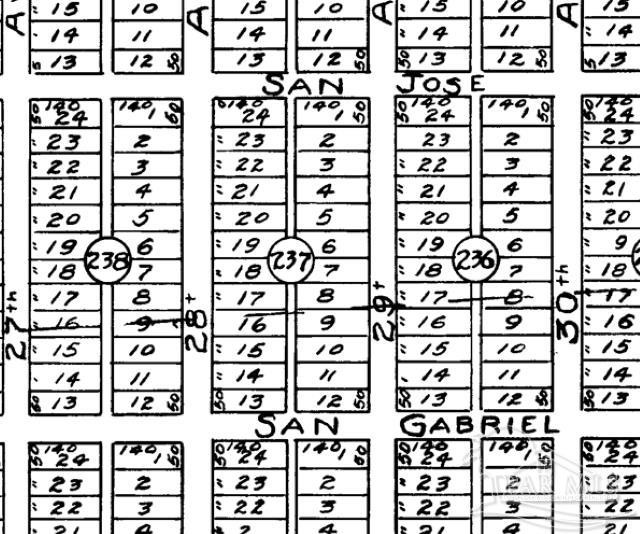 A 15 10 A 15 10 A 15 10 A 15
14 11 14 11 14 11 14
5 13 12 50 13 12 50 50 13 12 50 5 13
SAN JOSE
50 140 140 50 140 140 50 50 140 140 50 50 140
24 1 24 1 24 1 24
23 2 23 2 23 2 23
22 3 22 3 22 3 22
21 4 21 4 21 4 21
20 5 20 5 20 5 20
19 6 19 6 19 6 9
238 237 236
18 7 18 7 18 7 18
17 8 17 8 17 8 17
27th 28t 29t 30th
16 9 16 9 16 9 16
15 10 15 10 15 10 15
14 11 14 11 14 11 14
50 13 12 50 50 13 12 50 50 13 12 50 50 13
SAN GABRIEL
50 140 140 50 50 140 140 50 50 140 140 50 50 140
24 1 24 1 24 1 24
23 2 23 2 23 2 23
22 3 22 3 22 3 22
21 4 2 4 21 4 21